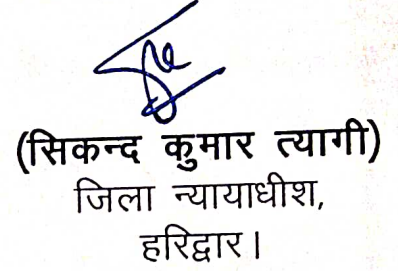 (सिकन्द कुमार त्यागी)
जिला न्यायाधीश,
हरिद्वार।